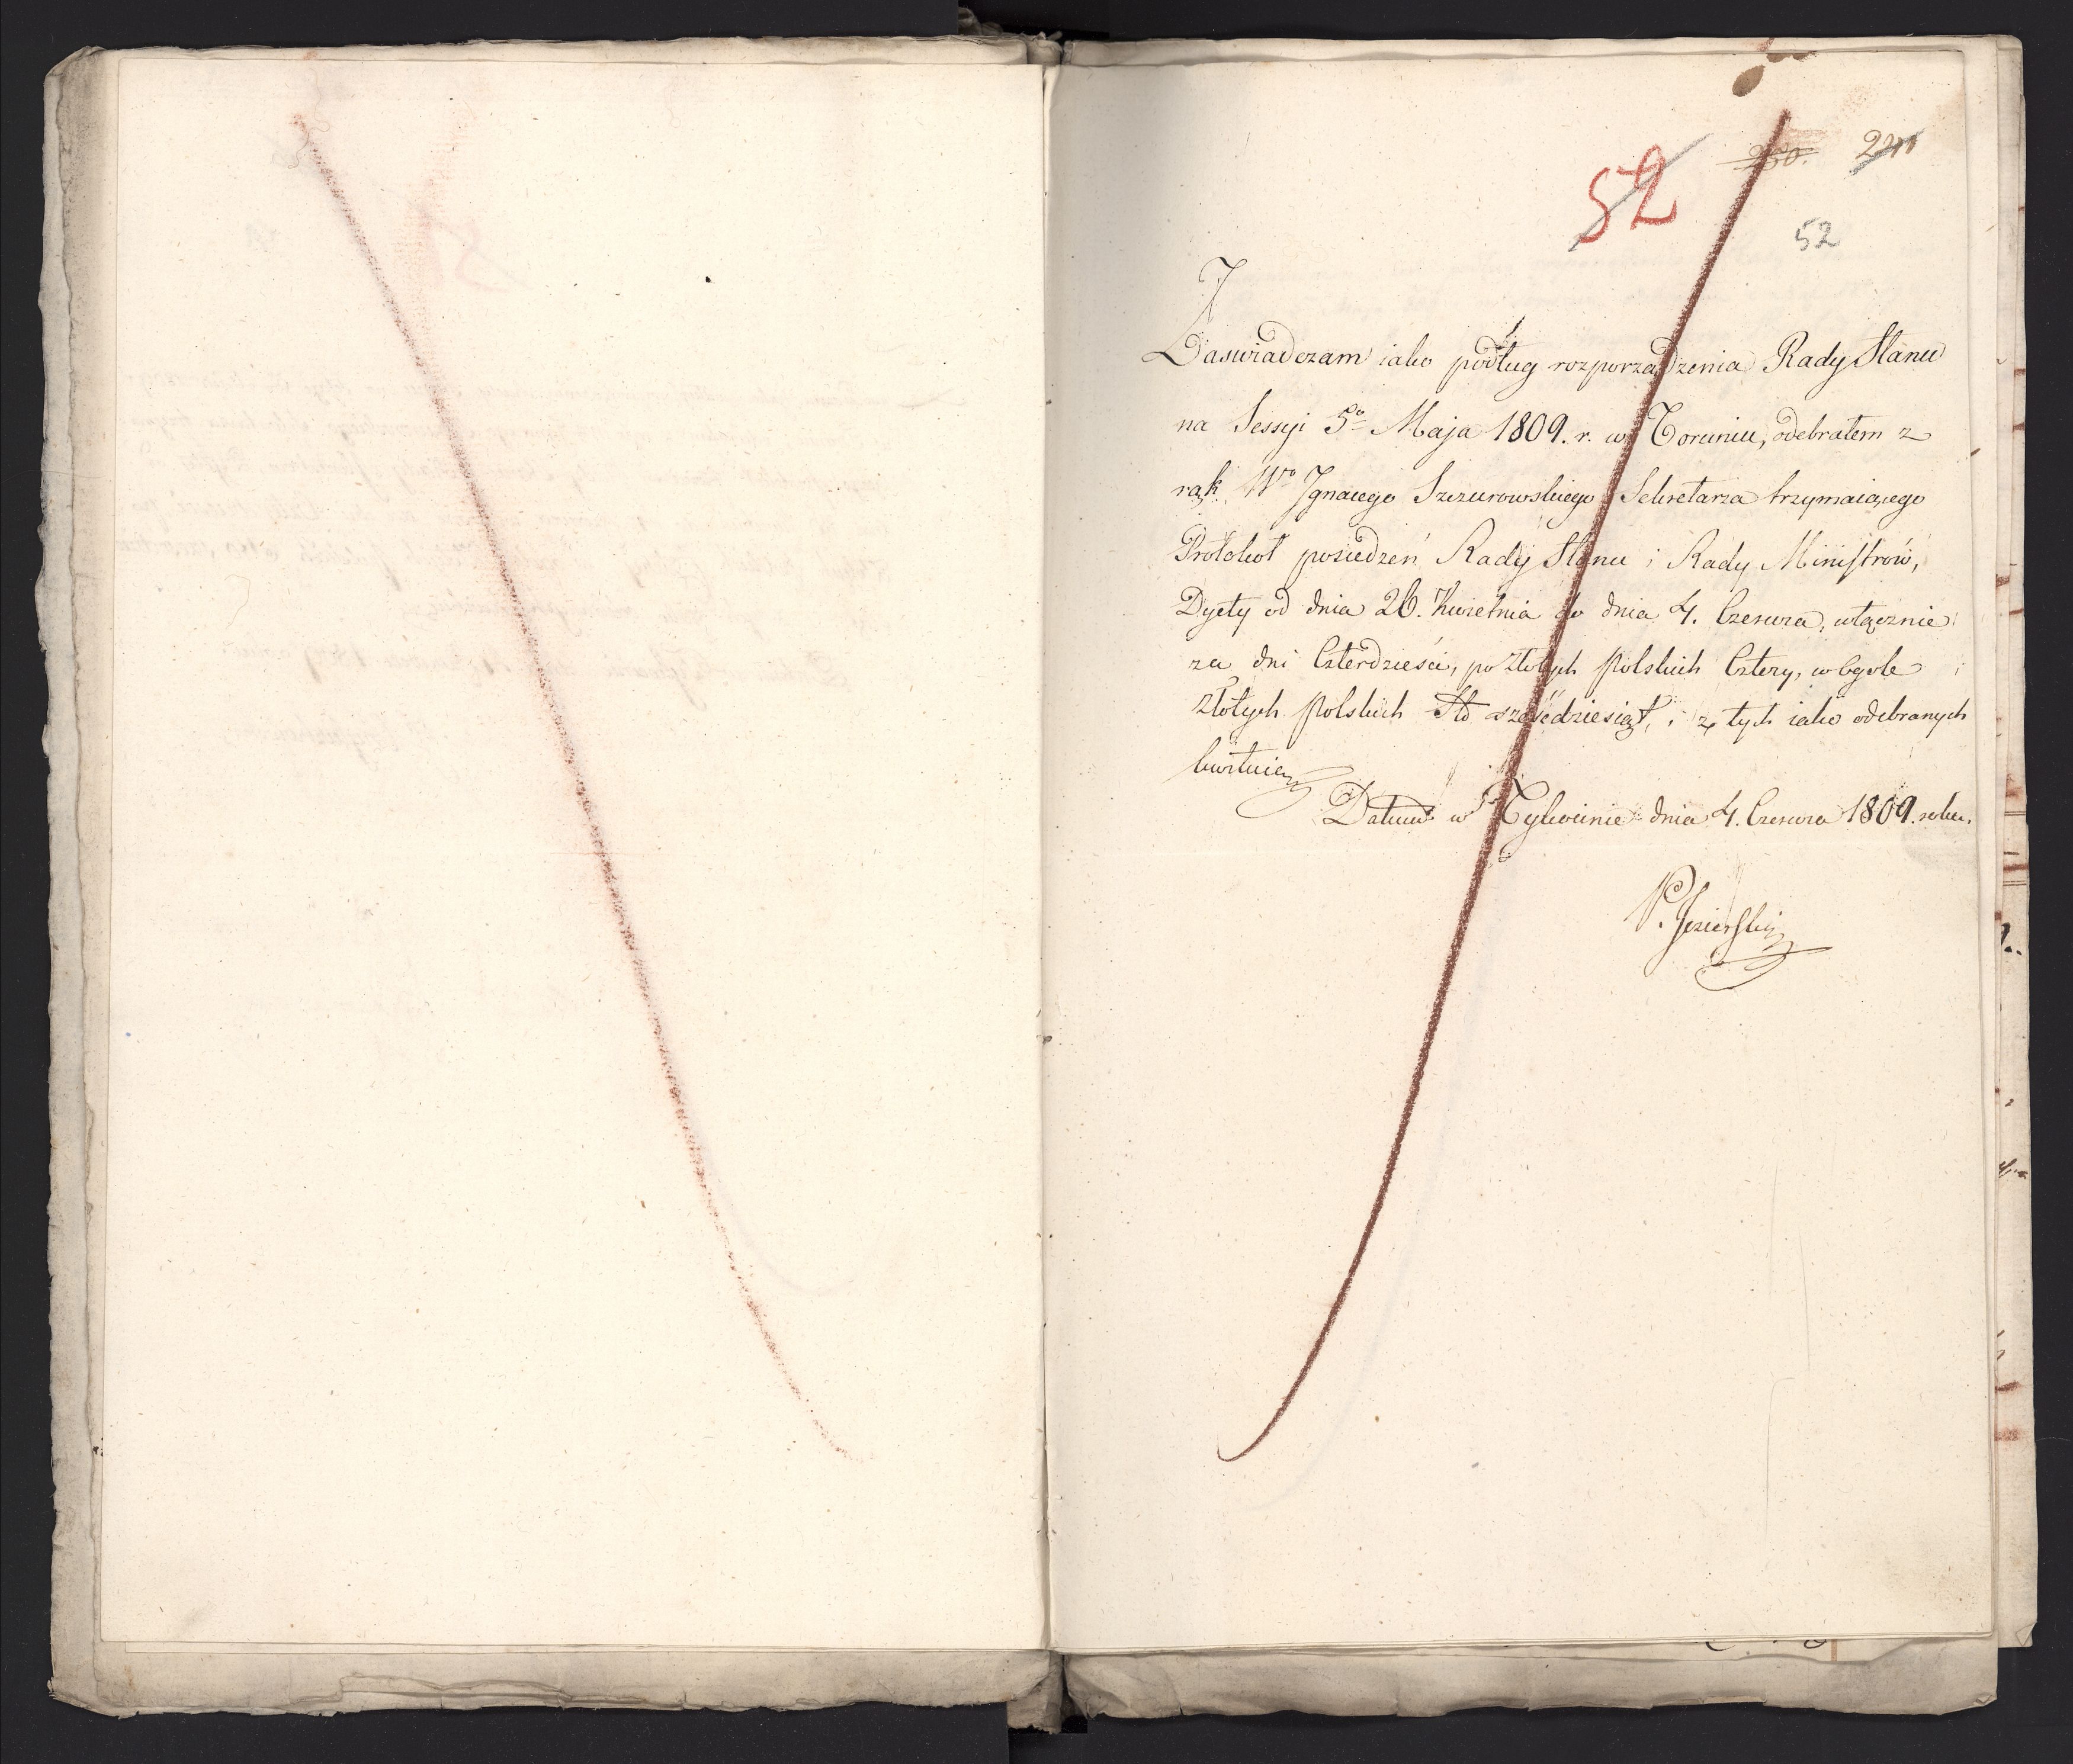 250. 211
52
52
Zaswiadczam iako podług rozporządzenia Rady Stanu
na Sessyi 5º Maja 1809. r. w Toruniu, odebrałem z
rąk Wº Ignacego Szczurowskiego Sekretarza trzymaiącego
Protokoł posiedzeń Rady Stanu i Rady Ministrów,
Dyety od dnia 26. Kwietnia do dnia 4. Czerwca, włącznie
za dni Czterdzieści, po złotych Polskich Cztery, wogole
złotych Polskich Sto sześćdziesiąt, i z tych iako odebranych
kwituię
Datum w Tykocinie dnia 4. Czerwca 1809. roku.
P. Jezierski